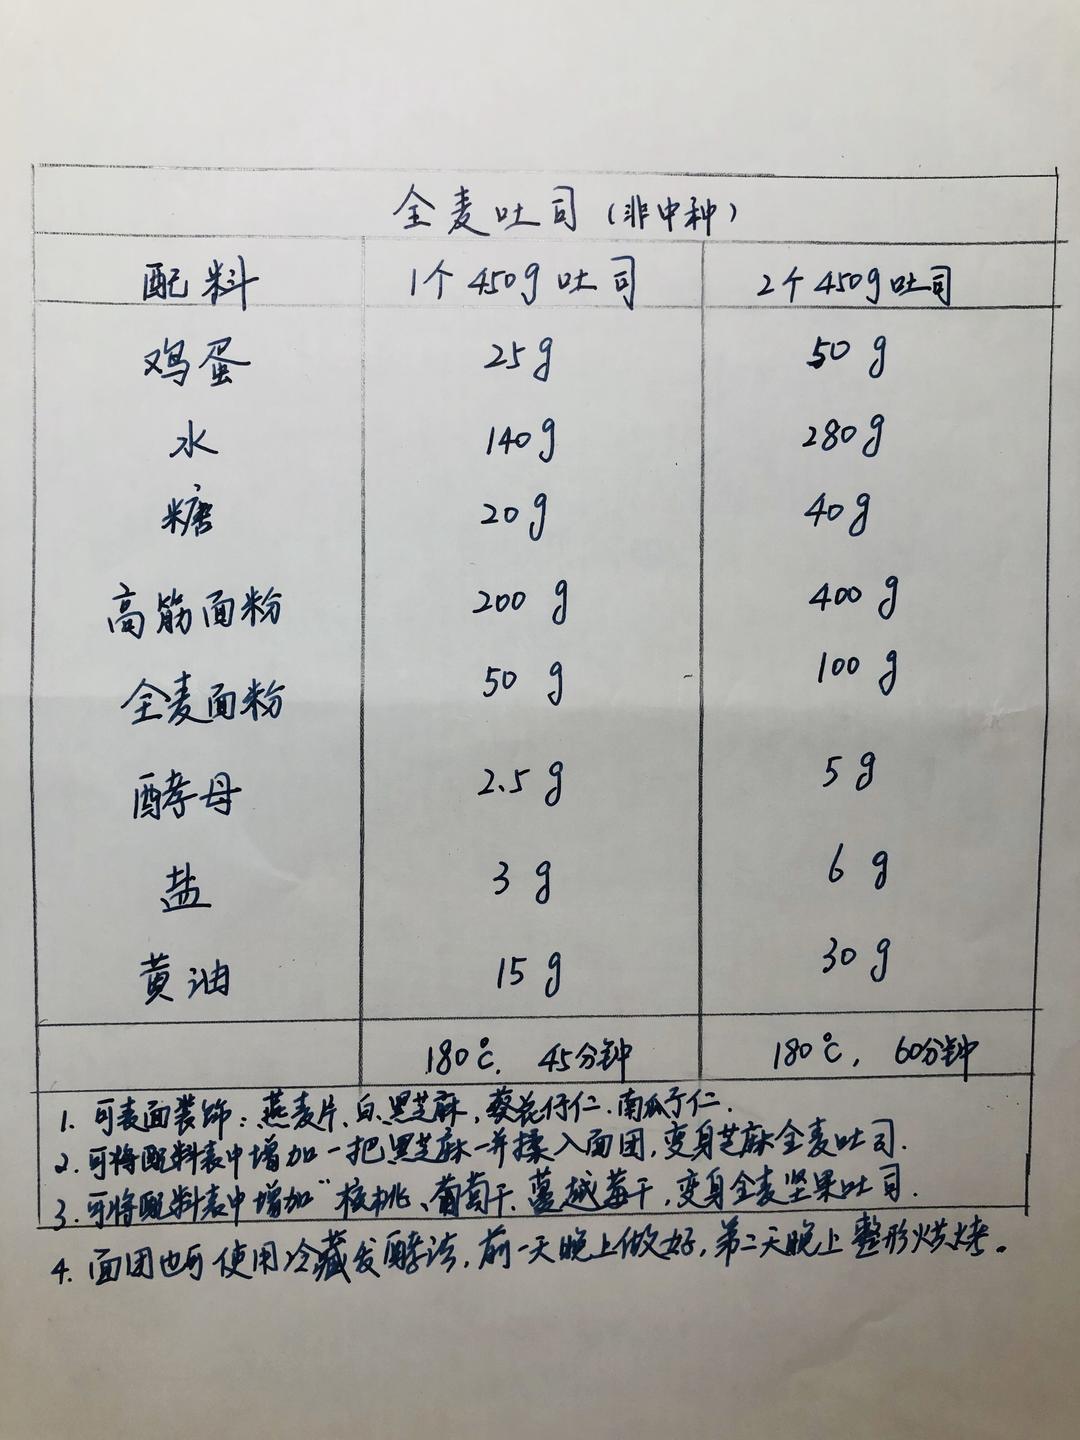 全麦吐司(非中种)
配料 1个450g吐司 2个450g吐司
鸡蛋 25g 50g
水 140g 280g
糖 20g 40g
高筋面粉 200g 400g
全麦面粉 50g 100g
酵母 2.5g 5g
盐 3g 6g
黄油 15g 30g
180℃, 45分钟 180℃, 60分钟
1. 可表面装饰:燕麦片、白、黑芝麻,葵花仔仁、南瓜子仁.
2. 可将配料表中增加一把黑芝麻一并揉入面团,变身芝麻全麦吐司.
3. 可将配料表中增加"核桃、葡萄干、蔓越莓干,变身全麦坚果吐司.
4. 面团也可使用冷藏发酵法,前一天晚上做好,第二天晚上整形烘烤。